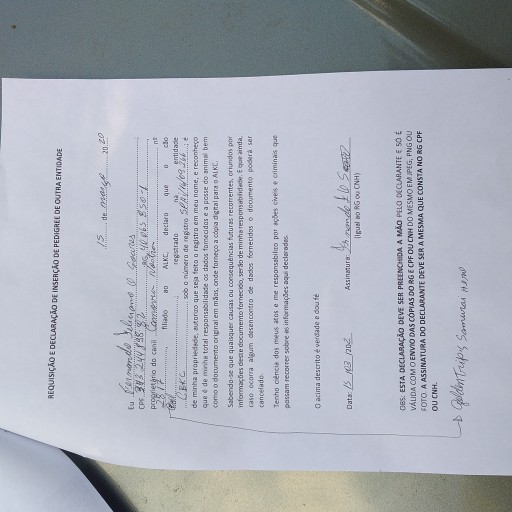 REQUISIÇÃO E DECLARAÇÃO DE INSERÇÃO DE PEDIGREE DE OUTRA ENTIDADE
15 de março 2020
Eu Fernando
CPF
proprietário do canil nº
filiado ao ALKC, declaro que o cão
registrado na entidade
CBKC sob o número de registro e
de minha propriedade, autorizo que seja feito o registro em meu nome, e reconheço
que é de minha total responsabilidade os dados fornecidos e a posse do animal bem
como o documento original em mãos, onde forneço a cópia digital para o ALKC.
Sabendo-se que quaisquer causas ou consequências futuras recorrentes, oriundos por
informações deste documento fornecido, serão de minha responsabilidade. E que ainda,
caso ocorra algum desencontro de dados fornecidos o documento poderá ser
cancelado.
Tenho ciência dos meus atos e me responsabilizo por ações cíveis e criminais que
possam recorrer sobre as informações aqui declaradas.
O acima descrito é verdade e dou fé
Data: 15 Assinatura: Fernando
(Igual ao RG ou CNH)
OBS: ESTA DECLARAÇÃO DEVE SER PREENCHIDA A MÃO PELO DECLARANTE E SÓ É
VÁLIDA COM O ENVIO DAS CÓPIAS DO RG E CPF OU CNH DO MESMO EM JPEG, PNG OU
FOTO. A ASSINATURA DO DECLARANTE DEVE SER A MESMA QUE CONSTA NO RG CPF
OU CNH.